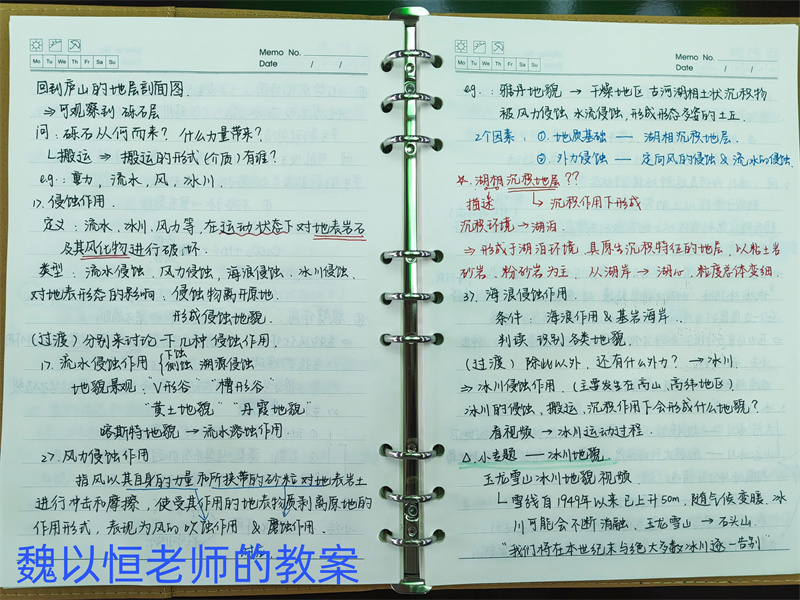 Memo No.
Mo Tu We Th Fr Sa Su
Date / /
回到庐山的地层剖面图.
⇒可观察到 砾石层
问: 砾石从何而来? 什么力量带来?
搬运 ⇒ 搬运的形式(介质)有谁?
eg: 重力, 流水, 风, 冰川.
1>. 侵蚀作用.
定义: 流水、冰川、风力等, 在运动状态下对地表岩石
及其风化物进行破坏.
类型: 流水侵蚀、风力侵蚀, 海浪侵蚀、冰川侵蚀.
对地表形态的影响: 侵蚀物离开原地.
形成侵蚀地貌.
(过渡) 分别来讨论一下几种侵蚀作用.
1>. 流水侵蚀作用 { 下蚀 侧蚀 溯源侵蚀
地貌景观: V形谷 "槽形谷
"黄土地貌" "丹霞地貌"
喀斯特地貌 → 流水溶蚀作用
2>. 风力侵蚀作用
指风以其自身的力量和所挟带的砂粒对地表岩土
进行冲击和摩擦, 使受其作用的地表物质剥离原地的
作用形式, 表现为风的吹蚀作用 & 磨蚀作用.
魏以恒老师的教案
Memo No.
Mo Tu We Th Fr Sa Su
Date / /
eg.: 雅丹地貌 → 干燥地区 古河湖相土状沉积物
被风力侵蚀 水流侵蚀, 形成形态各异的土丘
2个因素: ①. 地质基础 — 湖相沉积地层.
②. 外力侵蚀 — 定向风的侵蚀 & 流水的侵蚀.
☆. 湖相沉积地层??
描述 沉积作用下形成
沉积环境→湖泊.
⇒ 形成于湖泊环境 具原生沉积特征的地层, 以粘土岩
砂岩、粉砂岩为主 从湖岸 → 湖心 粒度总体变细.
3>. 海浪侵蚀作用.
条件: 海浪作用 & 基岩海岸.
判读 识别各类地貌.
(过渡) 除此以外, 还有什么外力? → 冰川.
⇒ 冰川侵蚀作用. (主要发生在高山 高纬地区)
冰川的侵蚀, 搬运, 沉积作用下会形成什么地貌?
看视频 → 冰川运动过程.
△. 小专题 — 冰川地貌.
玉龙雪山冰川地貌 视频.
雪线自1949年以来已上升50m, 随气候变暖. 冰
川可能会不断消融 玉龙雪山 → 石头山.
"我们将在本世纪末与绝大多数冰川逐一告别"